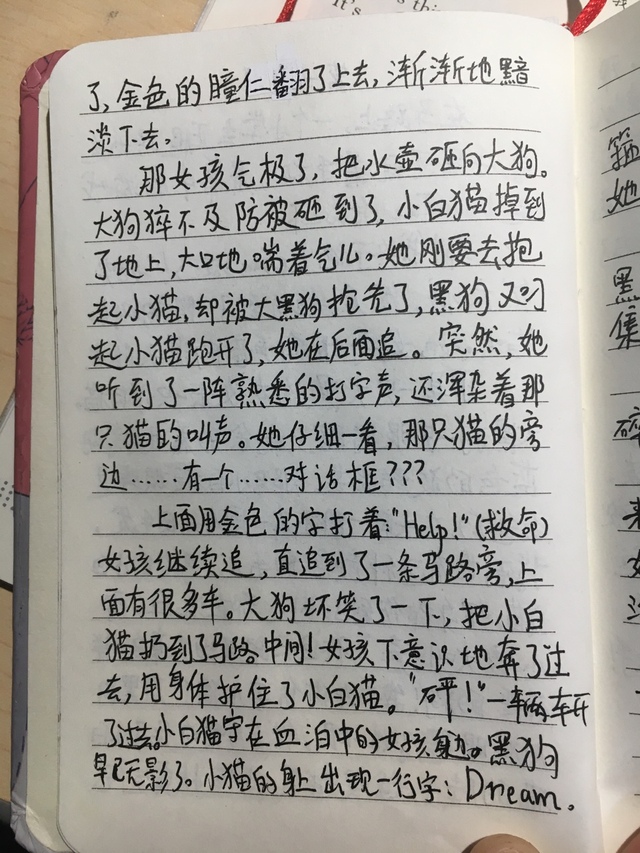 It's
It's
th
了,金色的瞳仁翻了上去,渐渐地黯
淡下去。
那女孩气极了,把水壶砸向大狗。
大狗猝不及防被砸到了,小白猫掉到
了地上,大口地喘着气儿。她刚要去抱
起小猫,却被大黑狗抢先了,黑狗又叼
起小猫跑开了,她在后面追。突然,她
听到了一阵熟悉的打字声,还浑杂着那
只猫的叫声。她仔细一看,那只猫的旁
边……有一个……对话框???
上面用金色的字打着:"Help!"(救命)
女孩继续追,直追到了一条马路旁,上
面有很多车。大狗坏笑了一下,把小白
猫扔到了马路中间!女孩下意识地奔了过
去,用身体护住了小白猫。"砰!"一辆车开
了过去。小白猫守在血泊中的女孩身边。黑狗
早已无影了。小猫的身上出现一行字:Dream.
箍
她
黑
集
碎
来